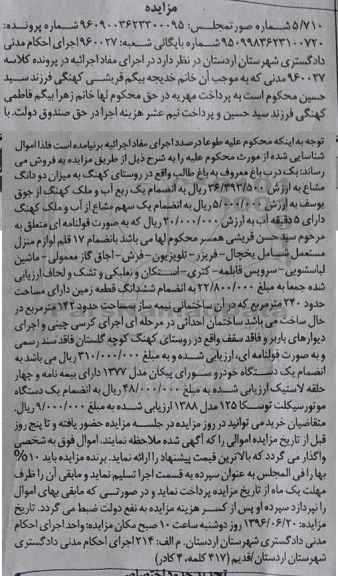 مزایده
۵/۷۱۰ شماره صورتمجلس: ۹۶۰۹۰۰۳۶۲۳۳۰۰۰۹۵ شماره پرونده:
۹۵۰۹۹۸۳۶۲۳۱۰۰۷۲۰ شماره بایگانی شعبه: ۹۶۰۰۲۷ اجرای احکام مدنی
دادگستری شهرستان اردستان در نظر دارد در اجرای مفاد اجرائیه در پرونده کلاسه
۹۶۰۰۲۷ مدنی که به موجب آن خانم خدیجه بیگم قریشی کهنگی فرزند سید
حسین محکوم است به پرداخت مهریه در حق محکوم لها خانم زهرا بیگم فاطمی
کهنگی فرزند سید حسین و پرداخت نیم عشر هزینه اجرا در حق صندوق دولت. با
توجه به اینکه محکوم علیه طوعا درصدد اجرای مفاد اجرائیه برنیامده است فلذا اموال
شناسایی شده از مورث محکوم علیه را به شرح ذیل از طریق مزایده به فروش می
رساند: یک درب باغ معروف به باغ طالب واقع در روستای کهنگ به میزان دو دانگ
مشاع به ارزش ۳۶/۳۹۳/۵۰۰ ریال به انضمام یک ربع آب و ملک کهنگ از جوق
یوسف به ارزش ۵/۰۰۰/۰۰۰ ریال به انضمام یک سهم مشاع از آب و ملک کهنگ
دارای ۵ دقیقه آب به ارزش ۲۰/۰۰۰/۰۰۰ ریال که به صورت قولنامه ای متعلق به
مرحوم سید حسن قریشی همسر محکوم لها می باشد بانضمام ۱۷ قلم لوازم منزل
مستعمل شامل یخچال - فریزر - تلویزیون - فرش - اجاق گاز معمولی - ماشین
لباسشویی - سرویس قابلمه - کتری - استکان و نعلبکی و تشک و لحاف ارزیابی
شده جمعا به مبلغ ۲۲/۸۰۰/۰۰۰ به انضمام ششدانگ قطعه زمین دارای مساحت
حدود ۲۴۰ مترمربع که در آن ساختمانی نیمه ساز بمساحت حدود ۱۴۲ مترمربع در
حال ساخت می باشد ساختمان احداثی در مرحله ای اجرای کرسی چینی و اجرای
دیوارهای باربر و فاقد سقف واقع در روستای کهنگ کوچه گلستان فاقد سند رسمی
و به صورت قولنامه ای، ارزیابی شده و به مبلغ ۳۱۰/۰۰۰/۰۰۰ ریال می باشد به
انضمام یک دستگاه خودرو سواری پیکان مدل ۱۳۷۷ دارای بیمه نامه و چهار
حلقه لاستیک ارزیابی شده به مبلغ ۴۸/۰۰۰/۰۰۰ ریال به انضمام یک دستگاه
موتورسیکلت توسکا ۱۲۵ مدل ۱۳۸۸ ارزیابی شده به مبلغ ۹/۰۰۰/۰۰۰ ریال.
متقاضیان خرید می توانید در روز مزایده در جلسه مزایده حضور یافته و تا پنج روز
قبل از تاریخ مزایده اموالی را که آگهی شده ملاحظه نمایند. اموال فوق به شخصی
واگذار می گردد که بالاترین قیمت پیشنهاد را ارائه نماید. برنده مزایده باید ۱۰%
بها را فی المجلس به عنوان سپرده به قسمت اجرا تسلیم نماید و مابقی آن را ظرف
مهلت یک ماه از تاریخ مزایده پرداخت نماید و در صورتی که مابقی بهای اموال
را نپردازد سپرده او پس از کسر هزینه مزایده به نفع دولت ضبط می گردد. تاریخ
مزایده: ۱۳۹۶/۰۶/۲۰ روز دوشنبه ساعت ۱۰ صبح مکان مزایده: واحد اجرای احکام
مدنی دادگستری شهرستان اردستان. م الف: ۲۱۴ اجرای احکام مدنی دادگستری
شهرستان اردستان/قدیم (۴۱۷ کلمه، ۴ کادر)